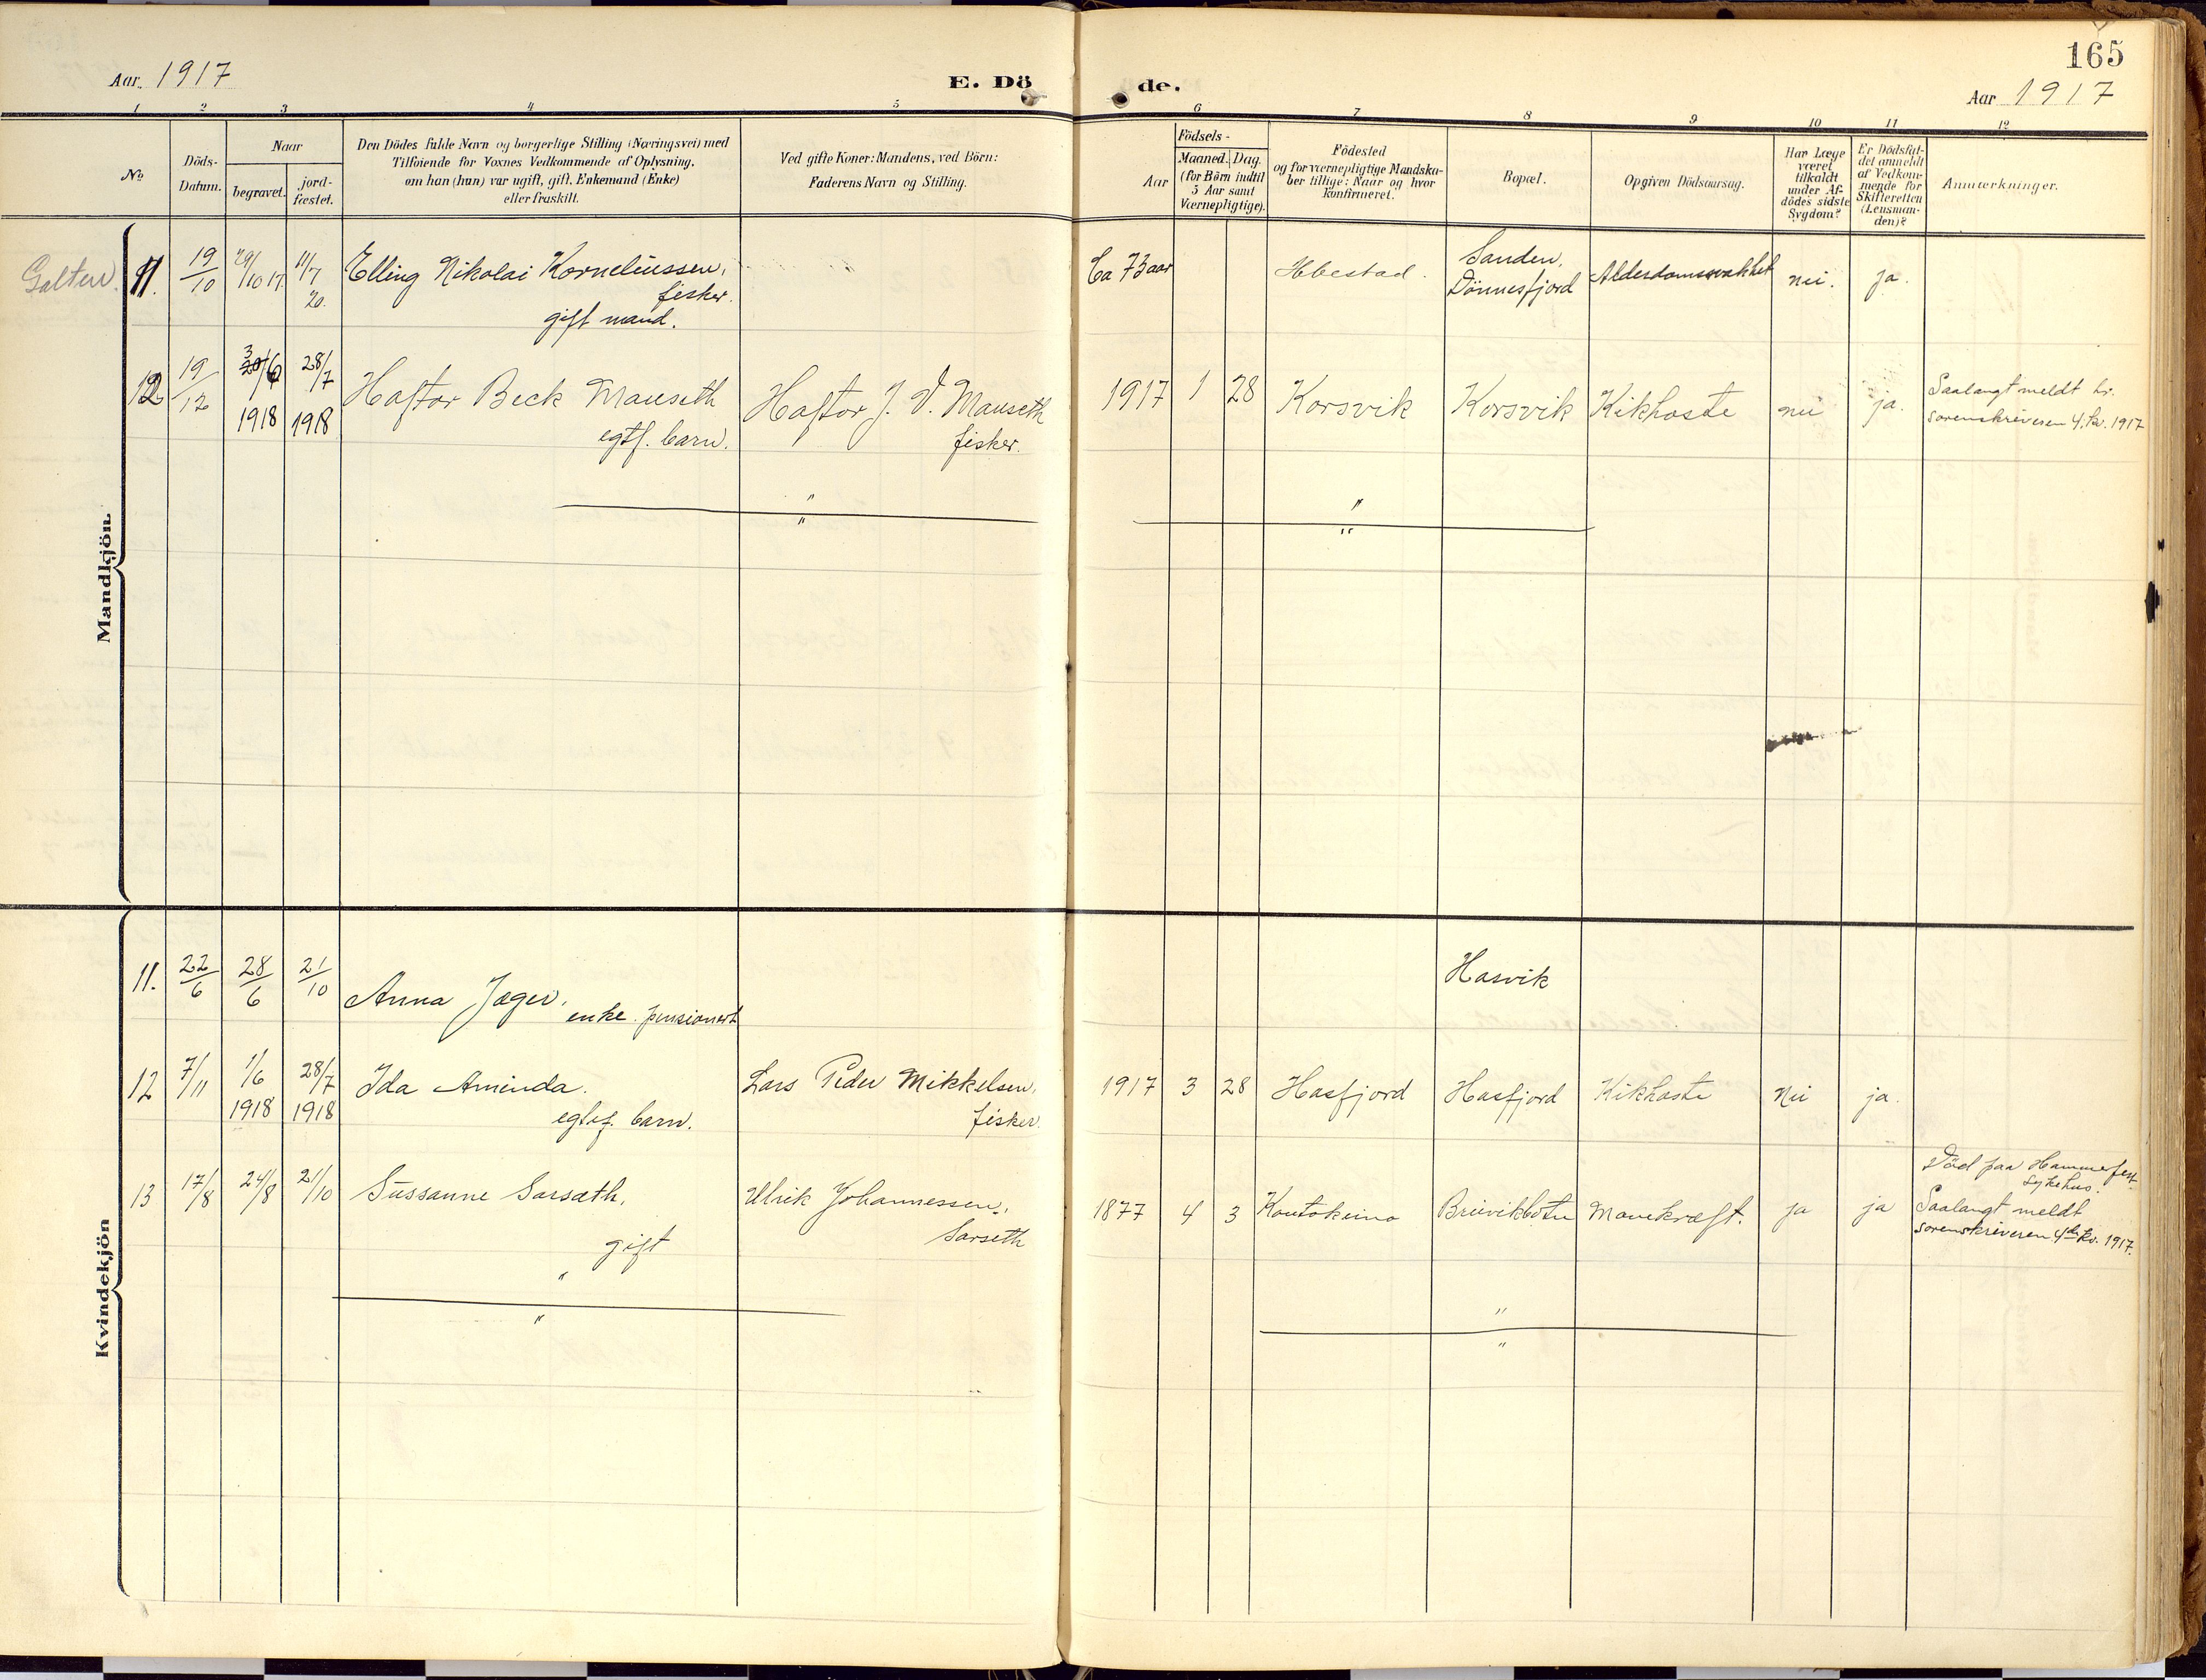 165
Aar 1917
E. Dö de.
Aar 1917
1 2 3 4 5 6 7 8 9 10 11 12
No
Döds-
Datum.
Naar
begravet.
jord-
fæstet.
Den Dödes fulde Navn og borgerlige Stilling (Næringsvei) med
Tilföiende for Voxnes Vedkommende af Oplysning,
om han (hun) var ugift, gift, Enkemand (Enke)
eller fraskilt.
Ved gifte Koner: Mandens, ved Börn:
Faderens Navn og Stilling.
Födsels-
Aar
Maaned. Dag.
(for Börn indtil
5 Aar samt
Værnepligtige).
Födested
og for værnepligtige Mandska-
ber tillige: Naar og hvor
konfirmeret.
Bopæl.
Opgiven Dödsaarsag.
Har Læge
været
tilkaldt
under Af-
dödes sidste
Sygdom?
Er Dödsfal-
det anmeldt
af Vedkom-
mende for
Skifteretten
(Lensman-
den)?
Anmærkninger.
Mandkjön.
Galten. 11. 19/10 29/10 17. 11/7 20. Elling Nikolai Korneliussen,
fisker.
gift mand.
Ca 73 aar Ibestad. Sanden,
Dönnesfjord Alderdomssvakhet nei. ja.
12. 19/12 3/6 1918 28/7 1918 Haftor Beck Mauseth
egtf. barn.
Haftor J. V. Mauseth
fisker.
1917 1 28 Korsvik Korsvik Kikhoste nei ja.
Saalangt meldt hr.
sorenskriveren 4. kv. 1917
Kvindekjön
11. 22/6 28/6 21/10 Anna Jæger,
enke. pensionert
Hasvik
12 7/11 1/6 1918 28/7 1918 Ida Aminda.
egtef. barn.
Lars Peder Mikkelsen,
fisker.
1917 3 28 Hasfjord Hasfjord Kikhoste Nei ja.
13 17/8 24/8 21/10 Sussanne Sarsæth,
gift
Ulrik Johannessen,
Sarseth
1877 4 3 Koutokeino Breivikbotn Mavekræft. ja ja
Död paa Hammerfest
sykehus.
Saalangt meldt
sorenskriveren 4de kv. 1917.